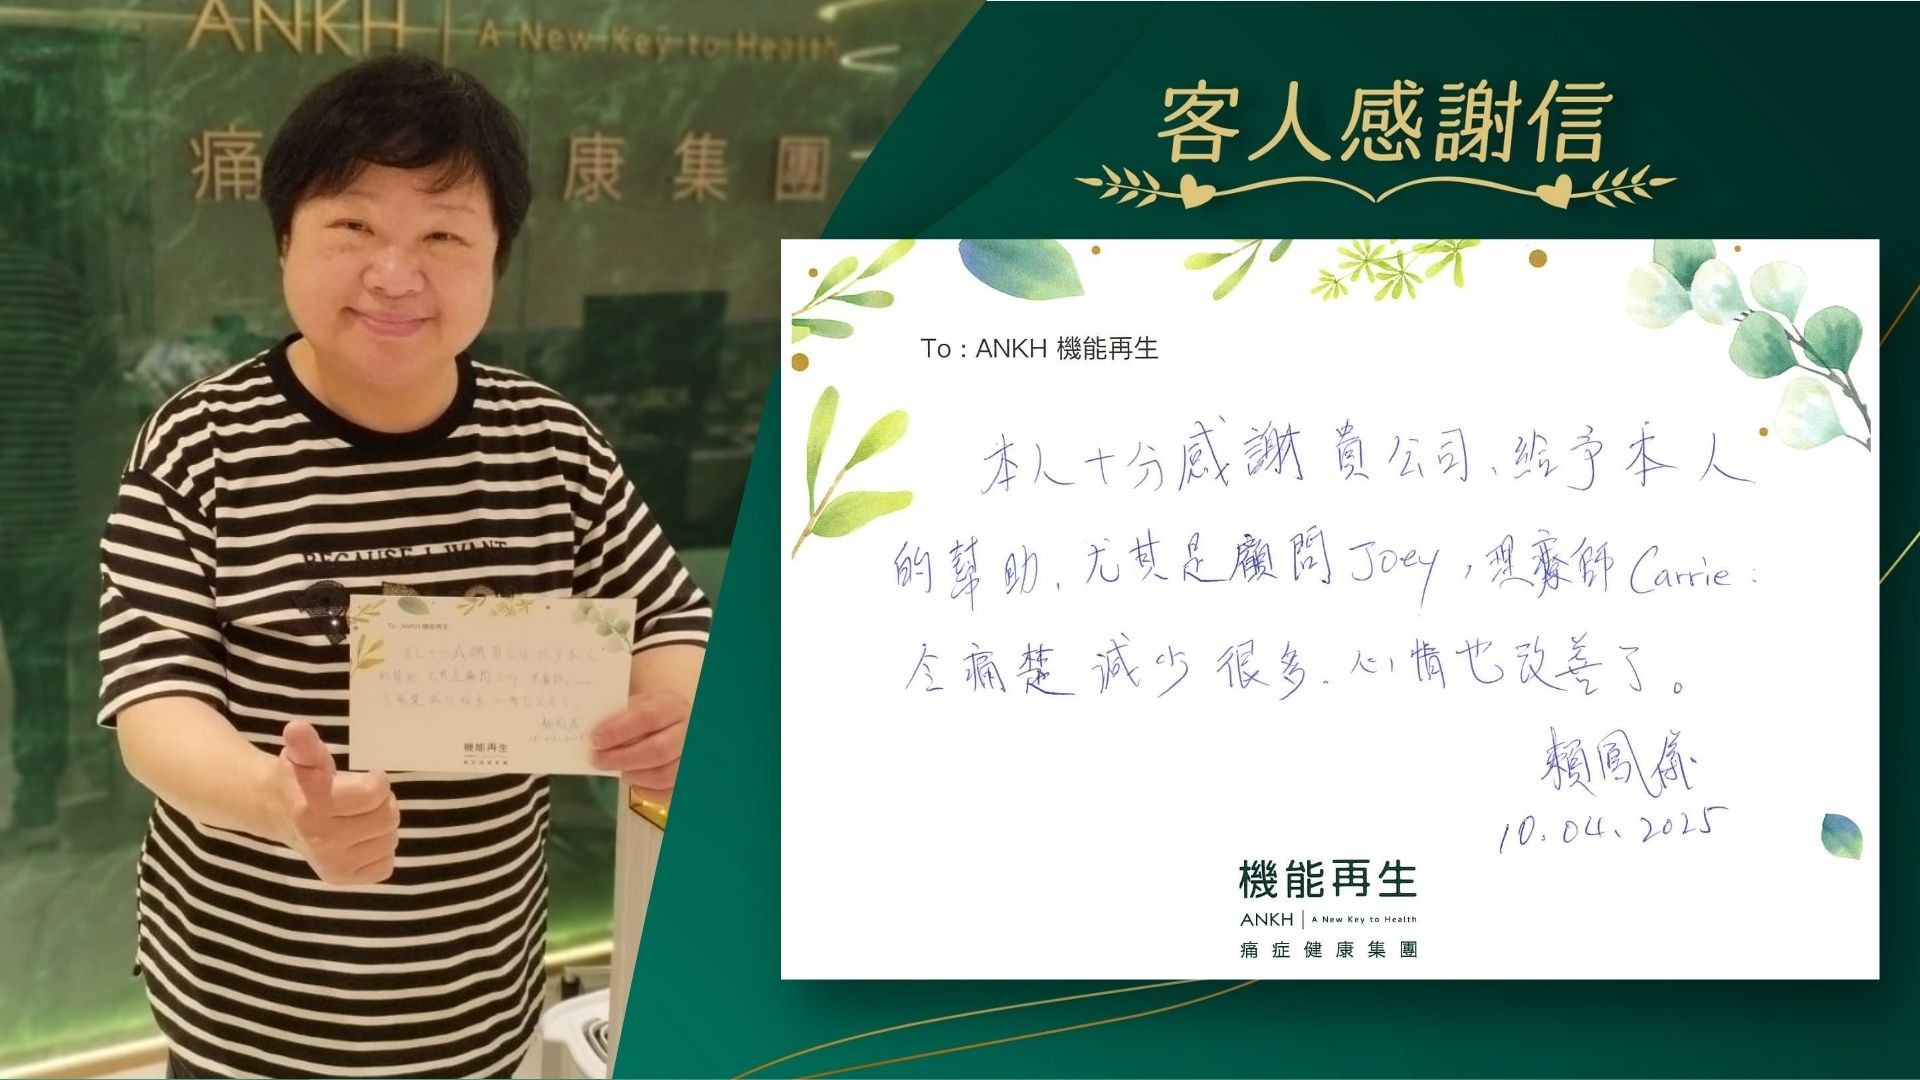 ANKH | A New Key to Health
痛 康集團
BECAUSE I WANT
客人感謝信
To : ANKH 機能再生
本人十分感謝貴公司、給予本人
的幫助、尤其是顧問Joey，理療師Carrie：
令痛楚減少很多、心情也改善了。
賴鳳儀
10.04.2025
機能再生
ANKH | A New Key to Health
痛症健康集團